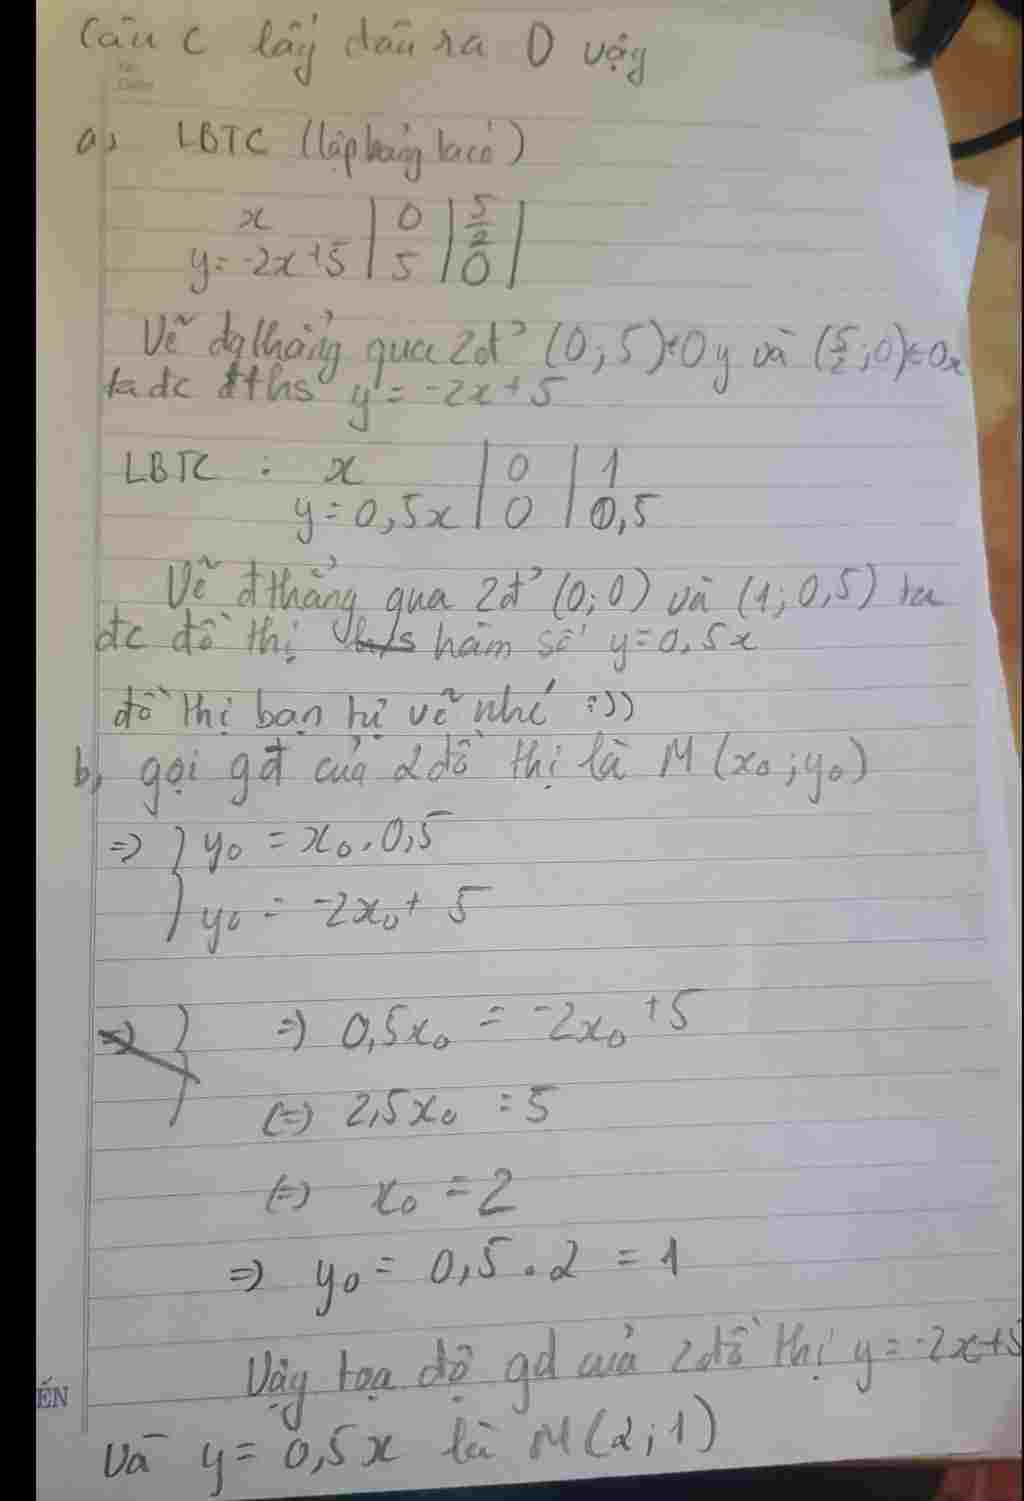 Câu c lấy đâu ra D vậy
a, LBTC (lập bảng ta có)
x | 0 | 5/2 |
y = -2x+5 | 5 | 0 |
Vẽ đg thẳng qua 2đ' (0;5)∈Oy và (5/2;0)∈Ox
ta dc đths y = -2x+5
LBTC : x | 0 | 1
y = 0,5x | 0 | 0,5
Vẽ đ thẳng qua 2đ' (0;0) và (1;0,5) ta
đc đồ thị hàm số y=0,5x
đồ thị bạn tự vẽ nhé :))
b, gọi gđ của 2 đồ thị là M (x₀;y₀)
=> } y₀ = x₀.0,5
y₀ = -2x₀ + 5
=> 0,5x₀ = -2x₀ + 5
(=) 2,5x₀ = 5
(=) x₀ = 2
=> y₀ = 0,5 . 2 = 1
Vậy toạ độ gđ của 2 đồ thị y = -2x+5
ẾN
và y = 0,5x là M(2;1)